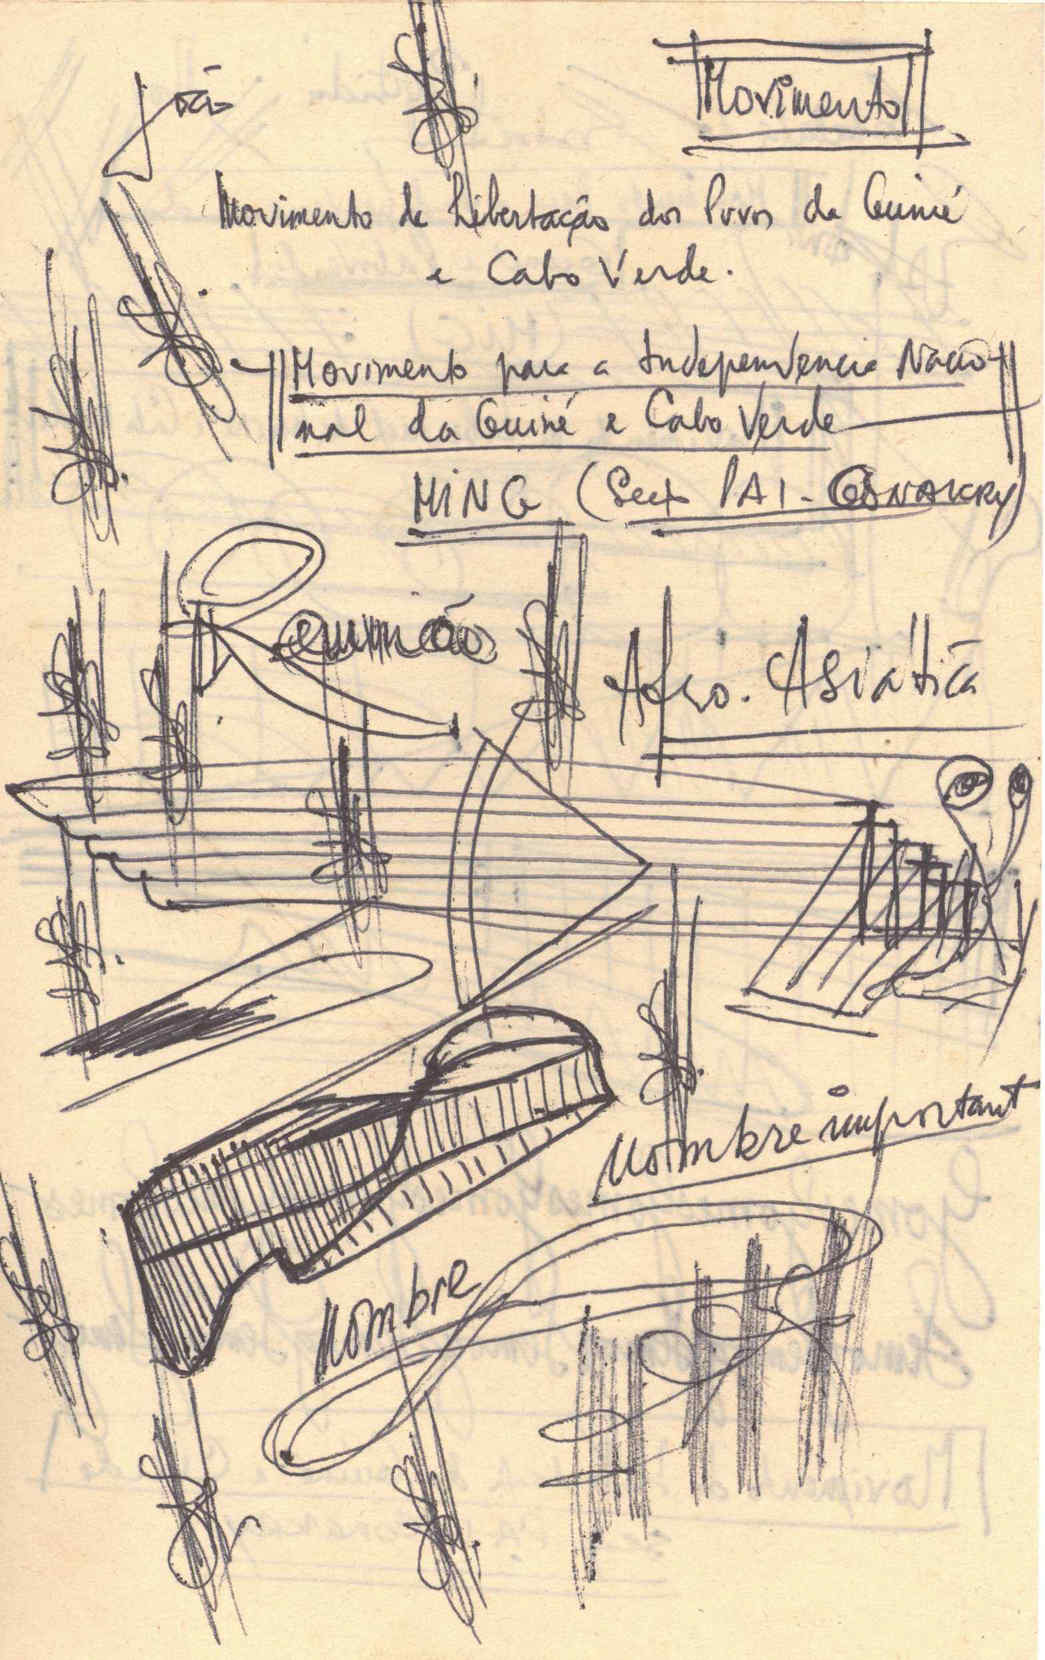 João
Movimento
Movimento de Libertação dos Povos da Guiné
e Cabo Verde.
Movimento para a Independencia Nacio-
nal da Guiné e Cabo Verde
MING (Sect PAI - CONAKRY)
Reunião
Afro-Asiática
Nombre important
Nombre